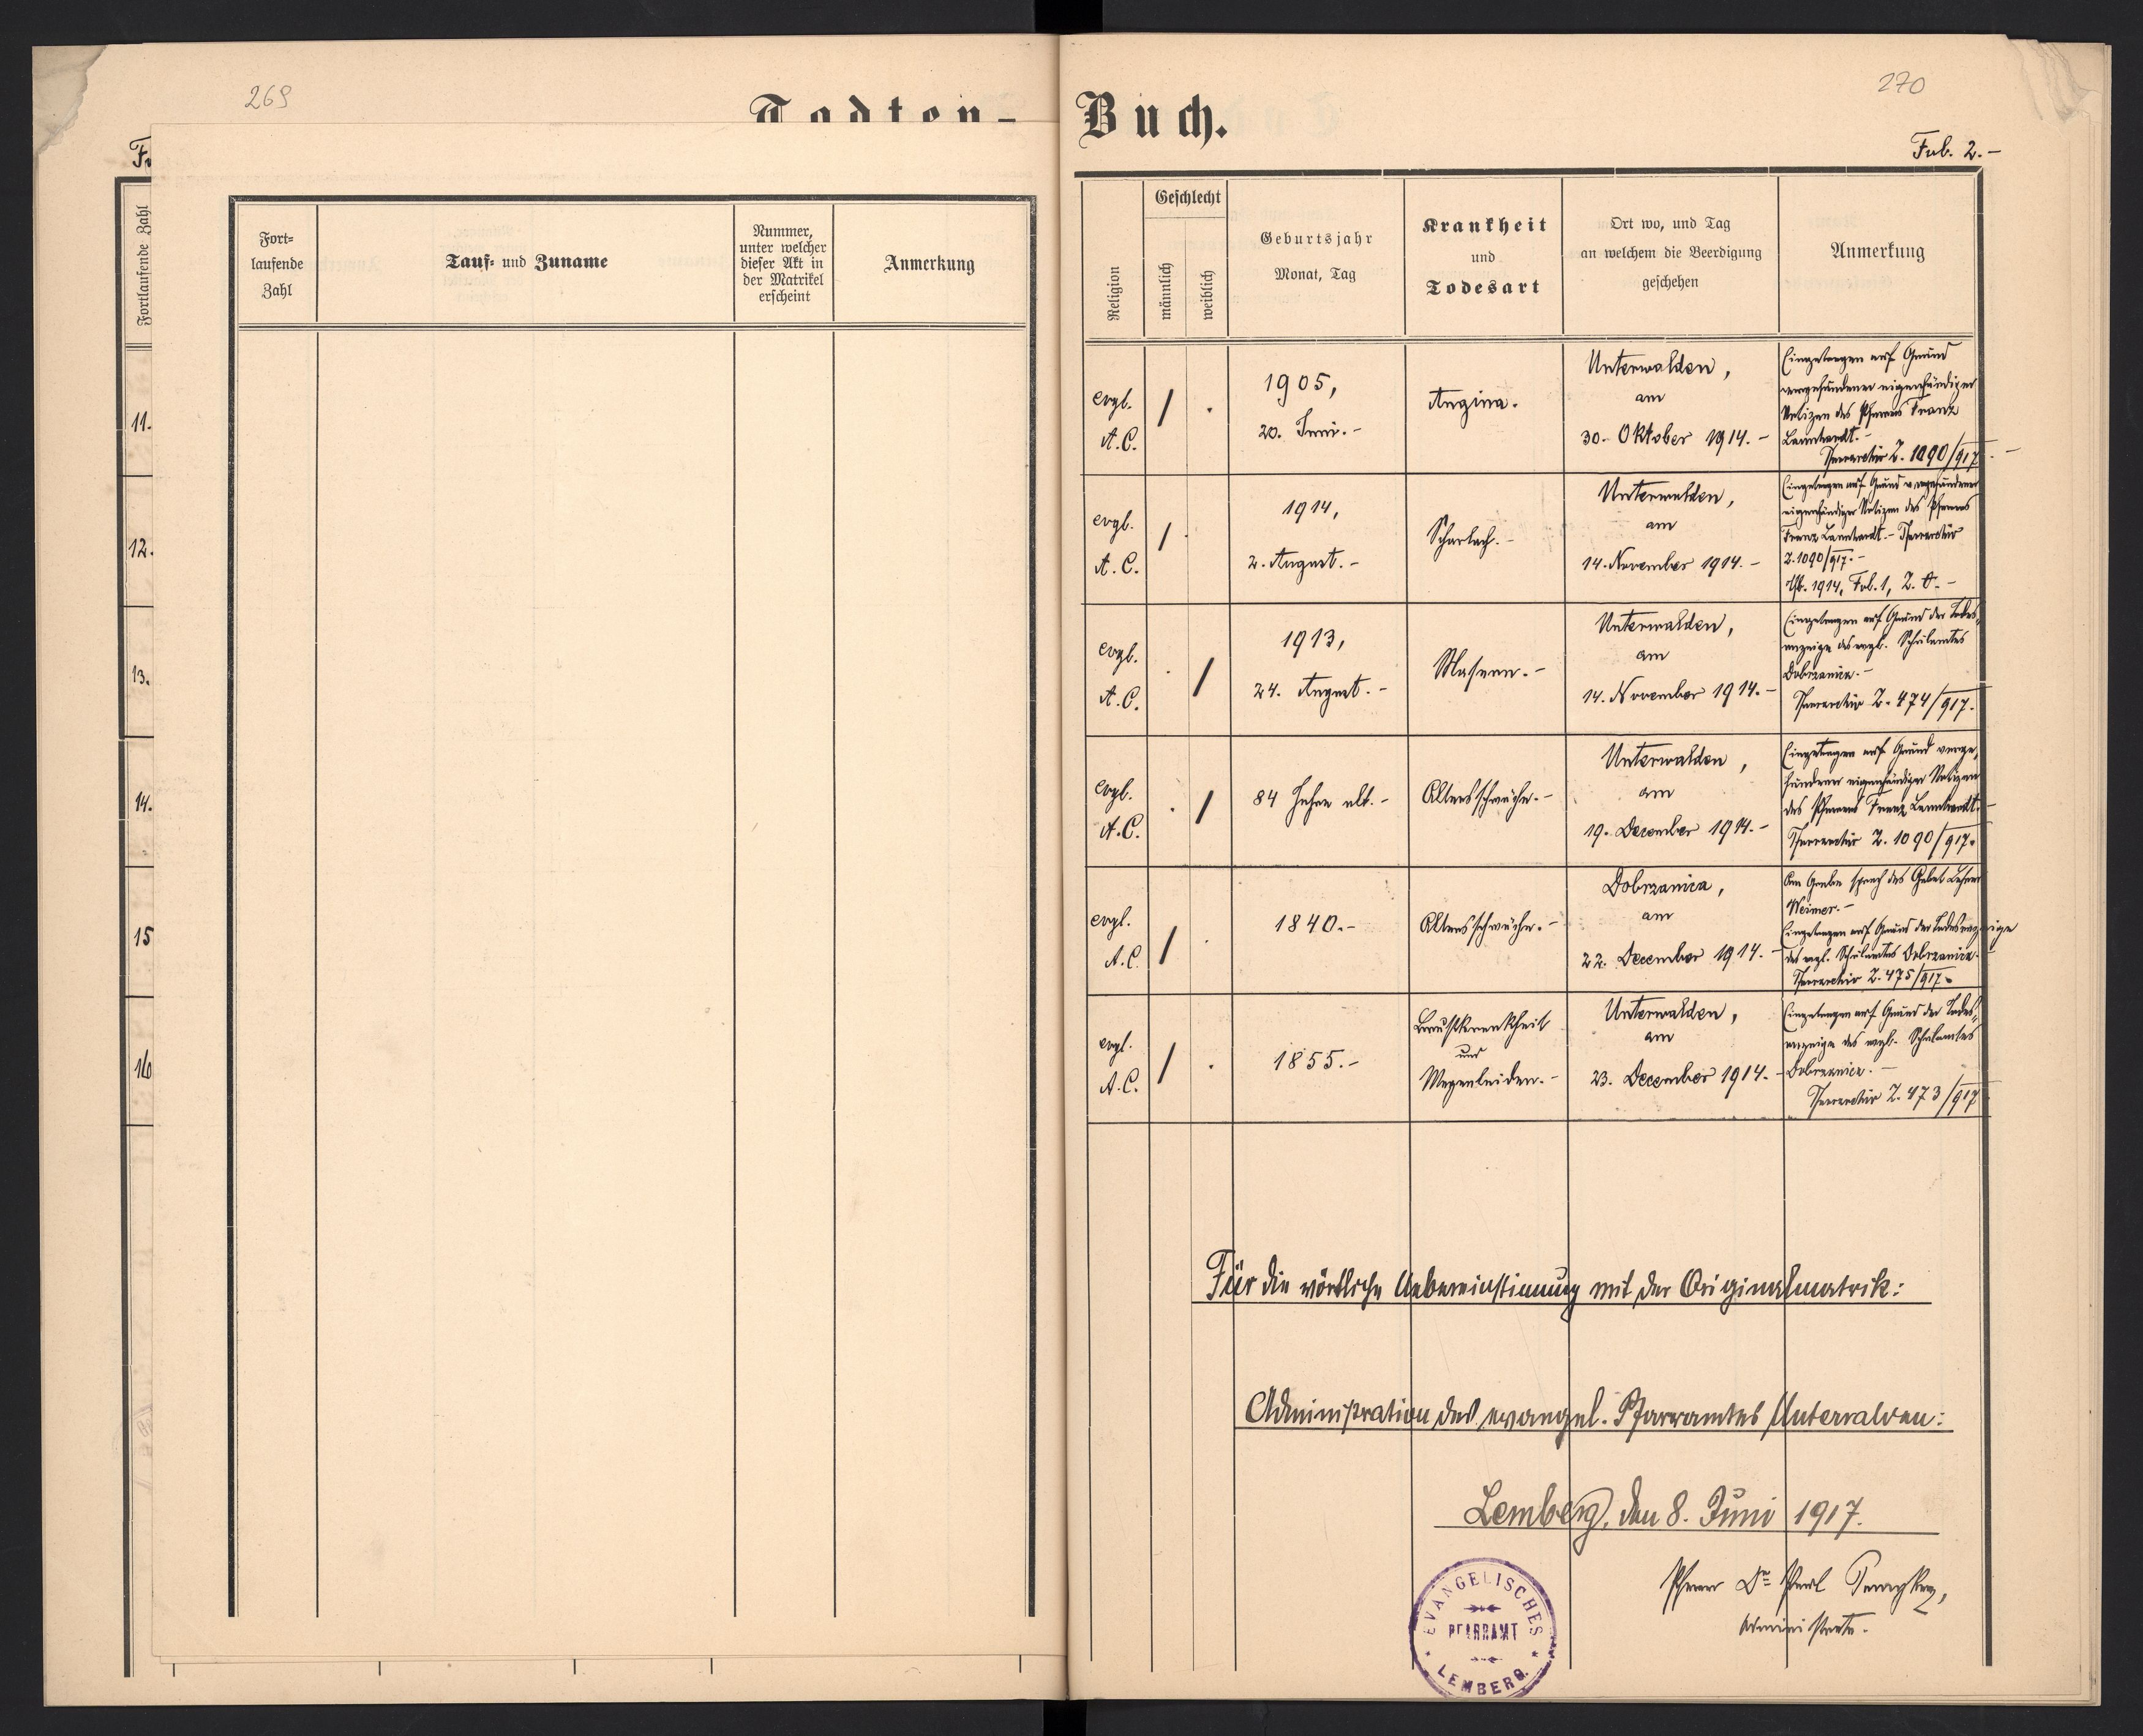 269
Todten-
Fort-
laufende
Zahl
Tauf- und Zuname
Nummer,
unter welcher
dieser Akt in
der Matrikel
erscheint
Anmerkung
Fortlaufende Zahl
11.
12.
13.
14.
15
16
270
Buch.
Fol. 2.-
Religion
Geschlecht
männlich
weiblich
Geburtsjahr
Monat, Tag
Krankheit
und
Todesart
Ort wo, und Tag
an welchem die Beerdigung
geschehen
Anmerkung
evgl.
A.C.
1905,
20. Juni.-
Angina.
Unterwalden,
am
30. Oktober 1914.-
Eingetragen auf Grund
vorgefundener eigenhändiger
Notizen des Pfarrers Franz
Z. 1090/917.-
evgl.
A.C.
1914,
2. August.-
Scharlach.-
Unterwalden,
am
14. November 1914.-
Eingetragen auf Grund vorgefundener
eigenhändiger Notizen des Pfarrers
Franz
Z. 1090/917.-
1914, Fol. 1, Z.
evgl.
A.C.
1913,
24. August.-
Masern.-
Unterwalden,
am
14. November 1914.-
Eingetragen auf Grund der Todes-
anzeige des evgl. Schulamtes
Dobrzanica.-
Z. 474/917.
evgl.
A.C.
84 Jahre alt.-
Altersschwäche.-
Unterwalden,
am
19. Dezember 1914.-
Eingetragen auf Grund vorge-
fundener eigenhändiger Notizen
des Pfarrers Franz
Z. 1090/917.
evgl.
A.C.
1840.-
Altersschwäche.-
Dobrzanica,
am
22. December 1914.-
Am Grabe sprach das Gebet Lehrer
Weimer.-
Eingetragen auf Grund der Todesanzeige
des evgl. Schulamtes Dobrzanica.-
Z. 475/917.
evgl.
A.C.
1855.-
Brustkrankheit
und
Magenleiden.-
Unterwalden,
am
23. December 1914.-
Eingetragen auf Grund der Todes-
anzeige des evgl. Schulamtes
Dobrzanica.-
Z. 473/917
Für die wörtliche Uebereinstimmung mit der Originalmatrik:
Administration des evangel. Pfarramtes Unterwalden:
Lemberg, den 8. Juni 1917.
Pfarrer Dr
EVANGELISCHES
PFARRAMT
LEMBERG.